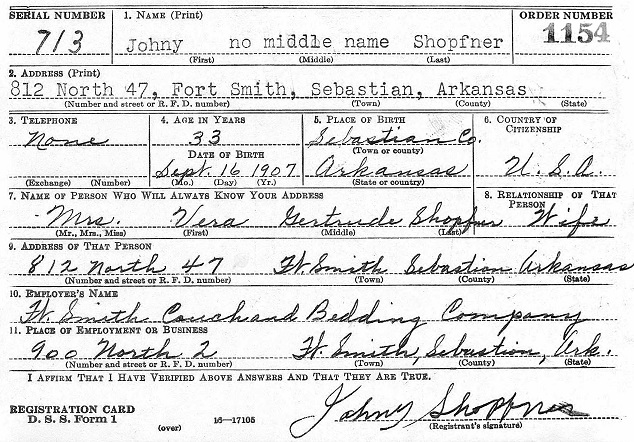 SERIAL NUMBER 1. NAME (Print) ORDER NUMBER
713 Johny no middle name Shopfner 1154
(First) (Middle) (Last)
2. ADDRESS (Print)
812 North 47, Fort Smith, Sebastian, Arkansas
(Number and street or R. F. D. number) (Town) (County) (State)
3. TELEPHONE 4. AGE IN YEARS 5. PLACE OF BIRTH 6. COUNTRY OF CITIZENSHIP
None 33 Sebastian Co.
DATE OF BIRTH (Town or county)
Sept. 16 1907 Arkansas U.S.A
(Exchange) (Number) (Mo.) (Day) (Yr.) (State or country)
7. NAME OF PERSON WHO WILL ALWAYS KNOW YOUR ADDRESS 8. RELATIONSHIP OF THAT PERSON
Mrs. Vera Gertrude Shopfner Wife
(Mr., Mrs., Miss) (First) (Middle) (Last)
9. ADDRESS OF THAT PERSON
812 North 47 Ft. Smith Sebastian Arkansas
(Number and street or R. F. D. number) (Town) (County) (State)
10. EMPLOYER'S NAME
Ft. Smith Couch and Bedding Company
11. PLACE OF EMPLOYMENT OR BUSINESS
900 North 2 Ft. Smith, Sebastian, Ark.
(Number and street or R. F. D. number) (Town) (County) (State)
I AFFIRM THAT I HAVE VERIFIED ABOVE ANSWERS AND THAT THEY ARE TRUE.
REGISTRATION CARD
D. S. S. Form 1 (over) 16—17105 Johny Shopfner
(Registrant's signature)